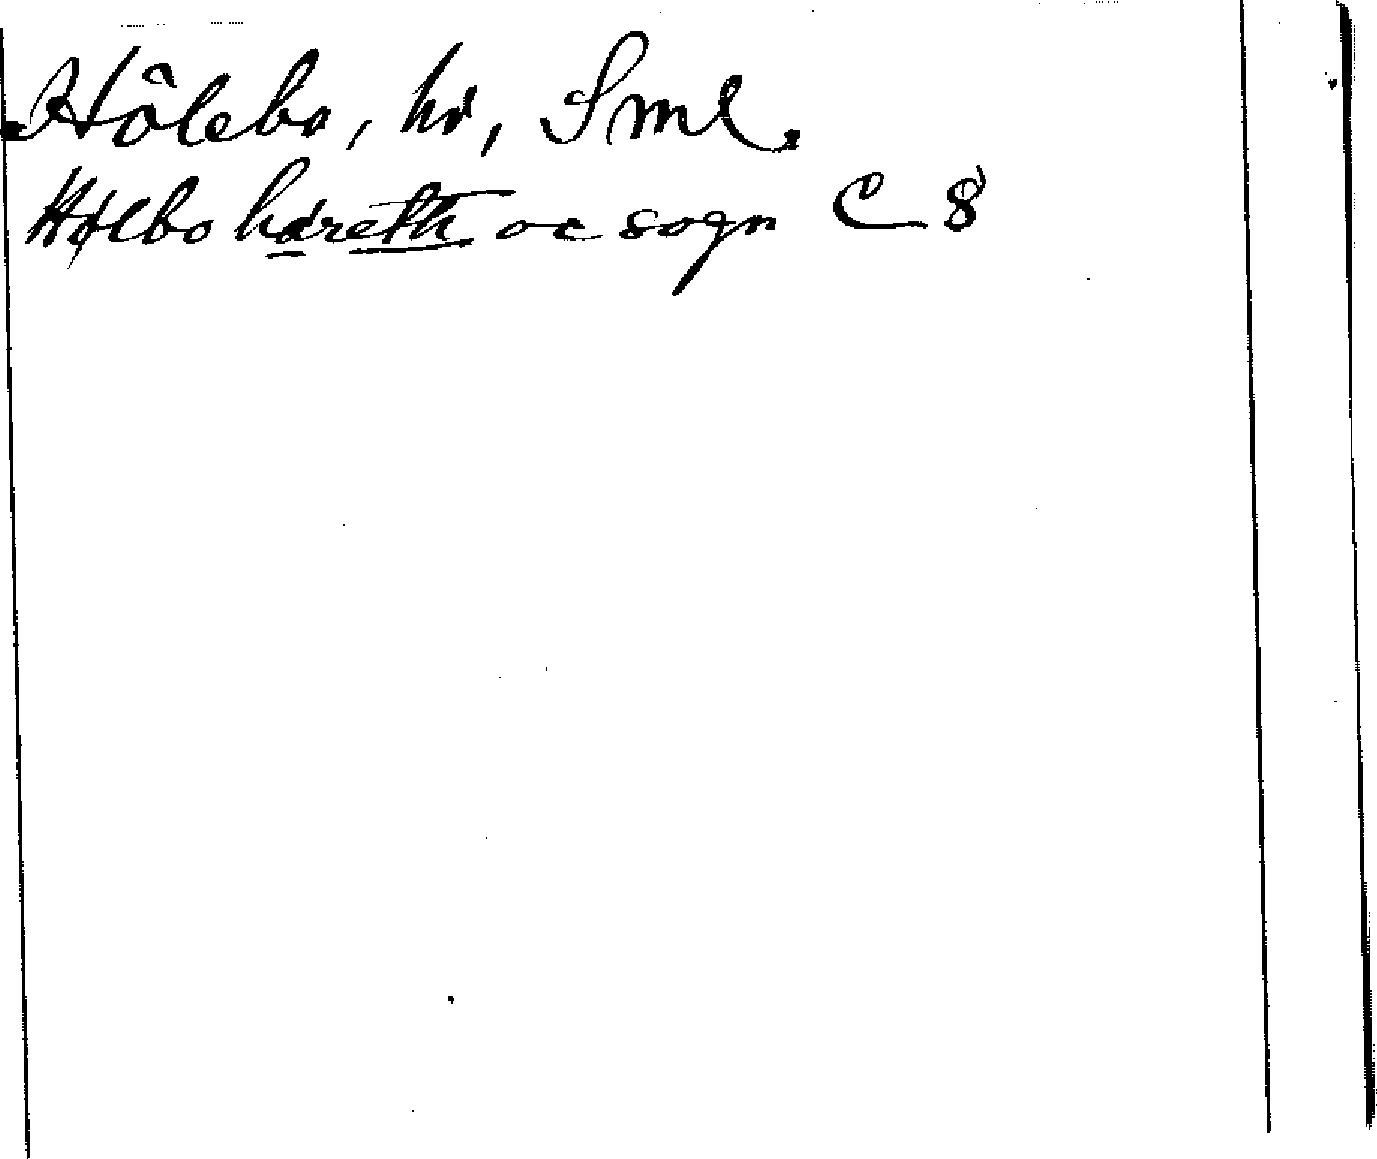 Hölebo, hd, Sml.
Hølbo hæreth oc sogn C 8